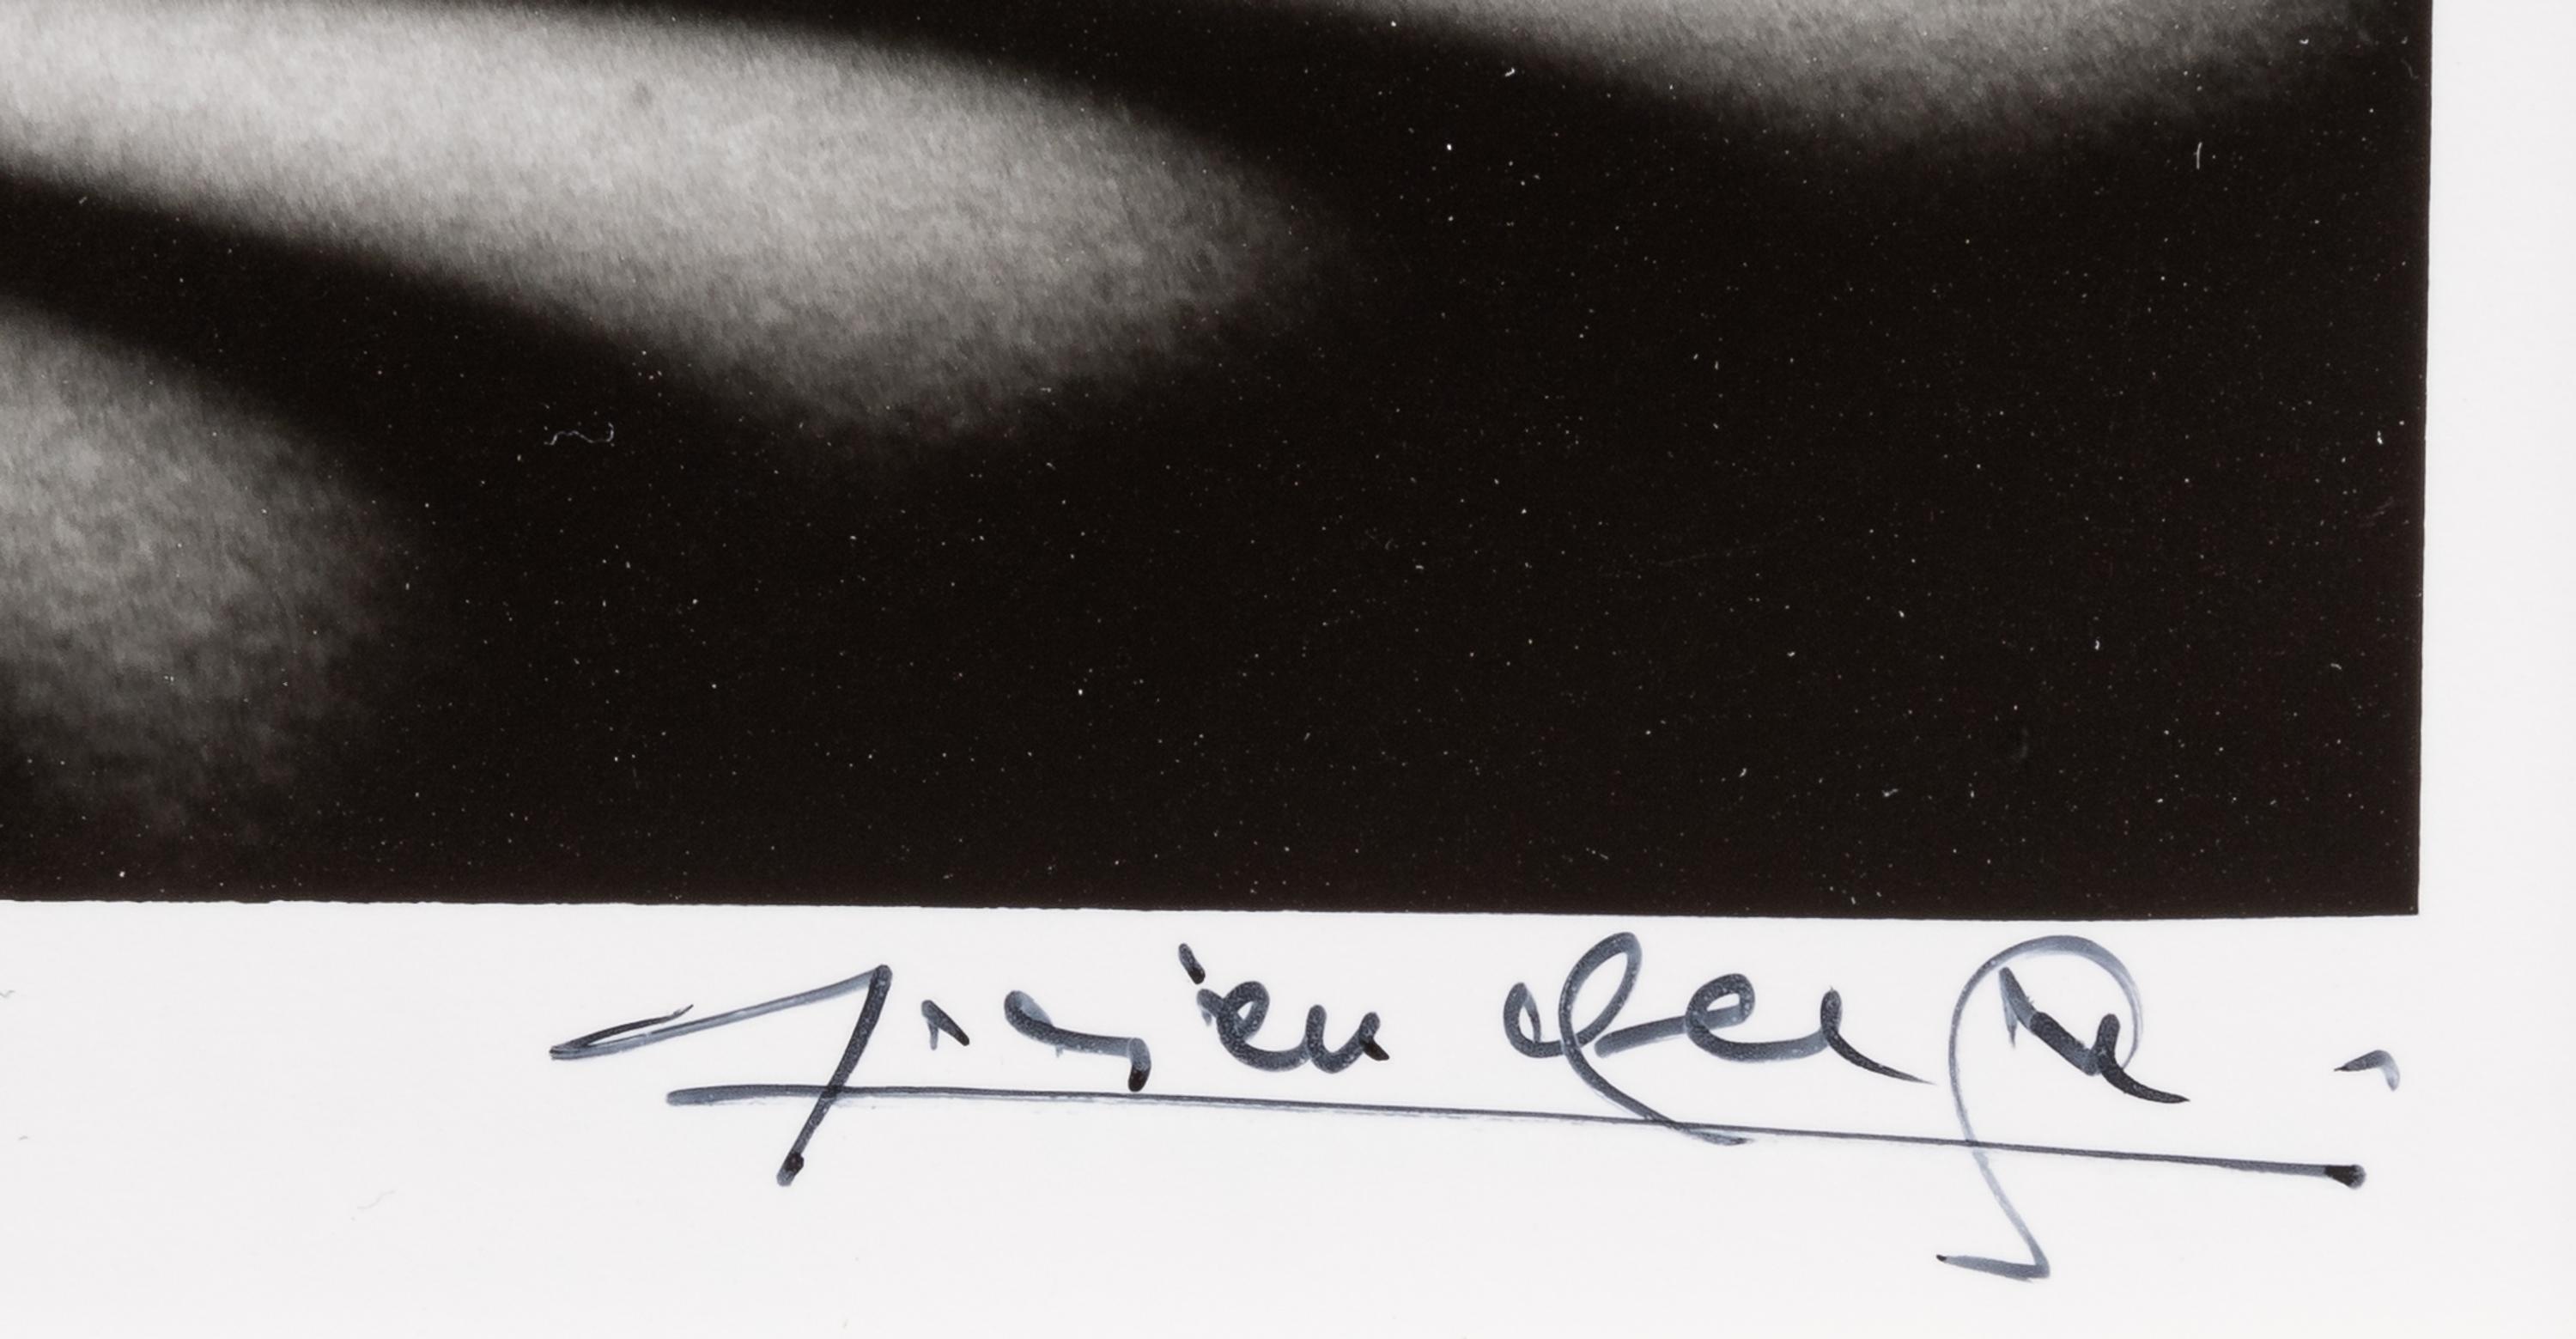 Lucien Clergue